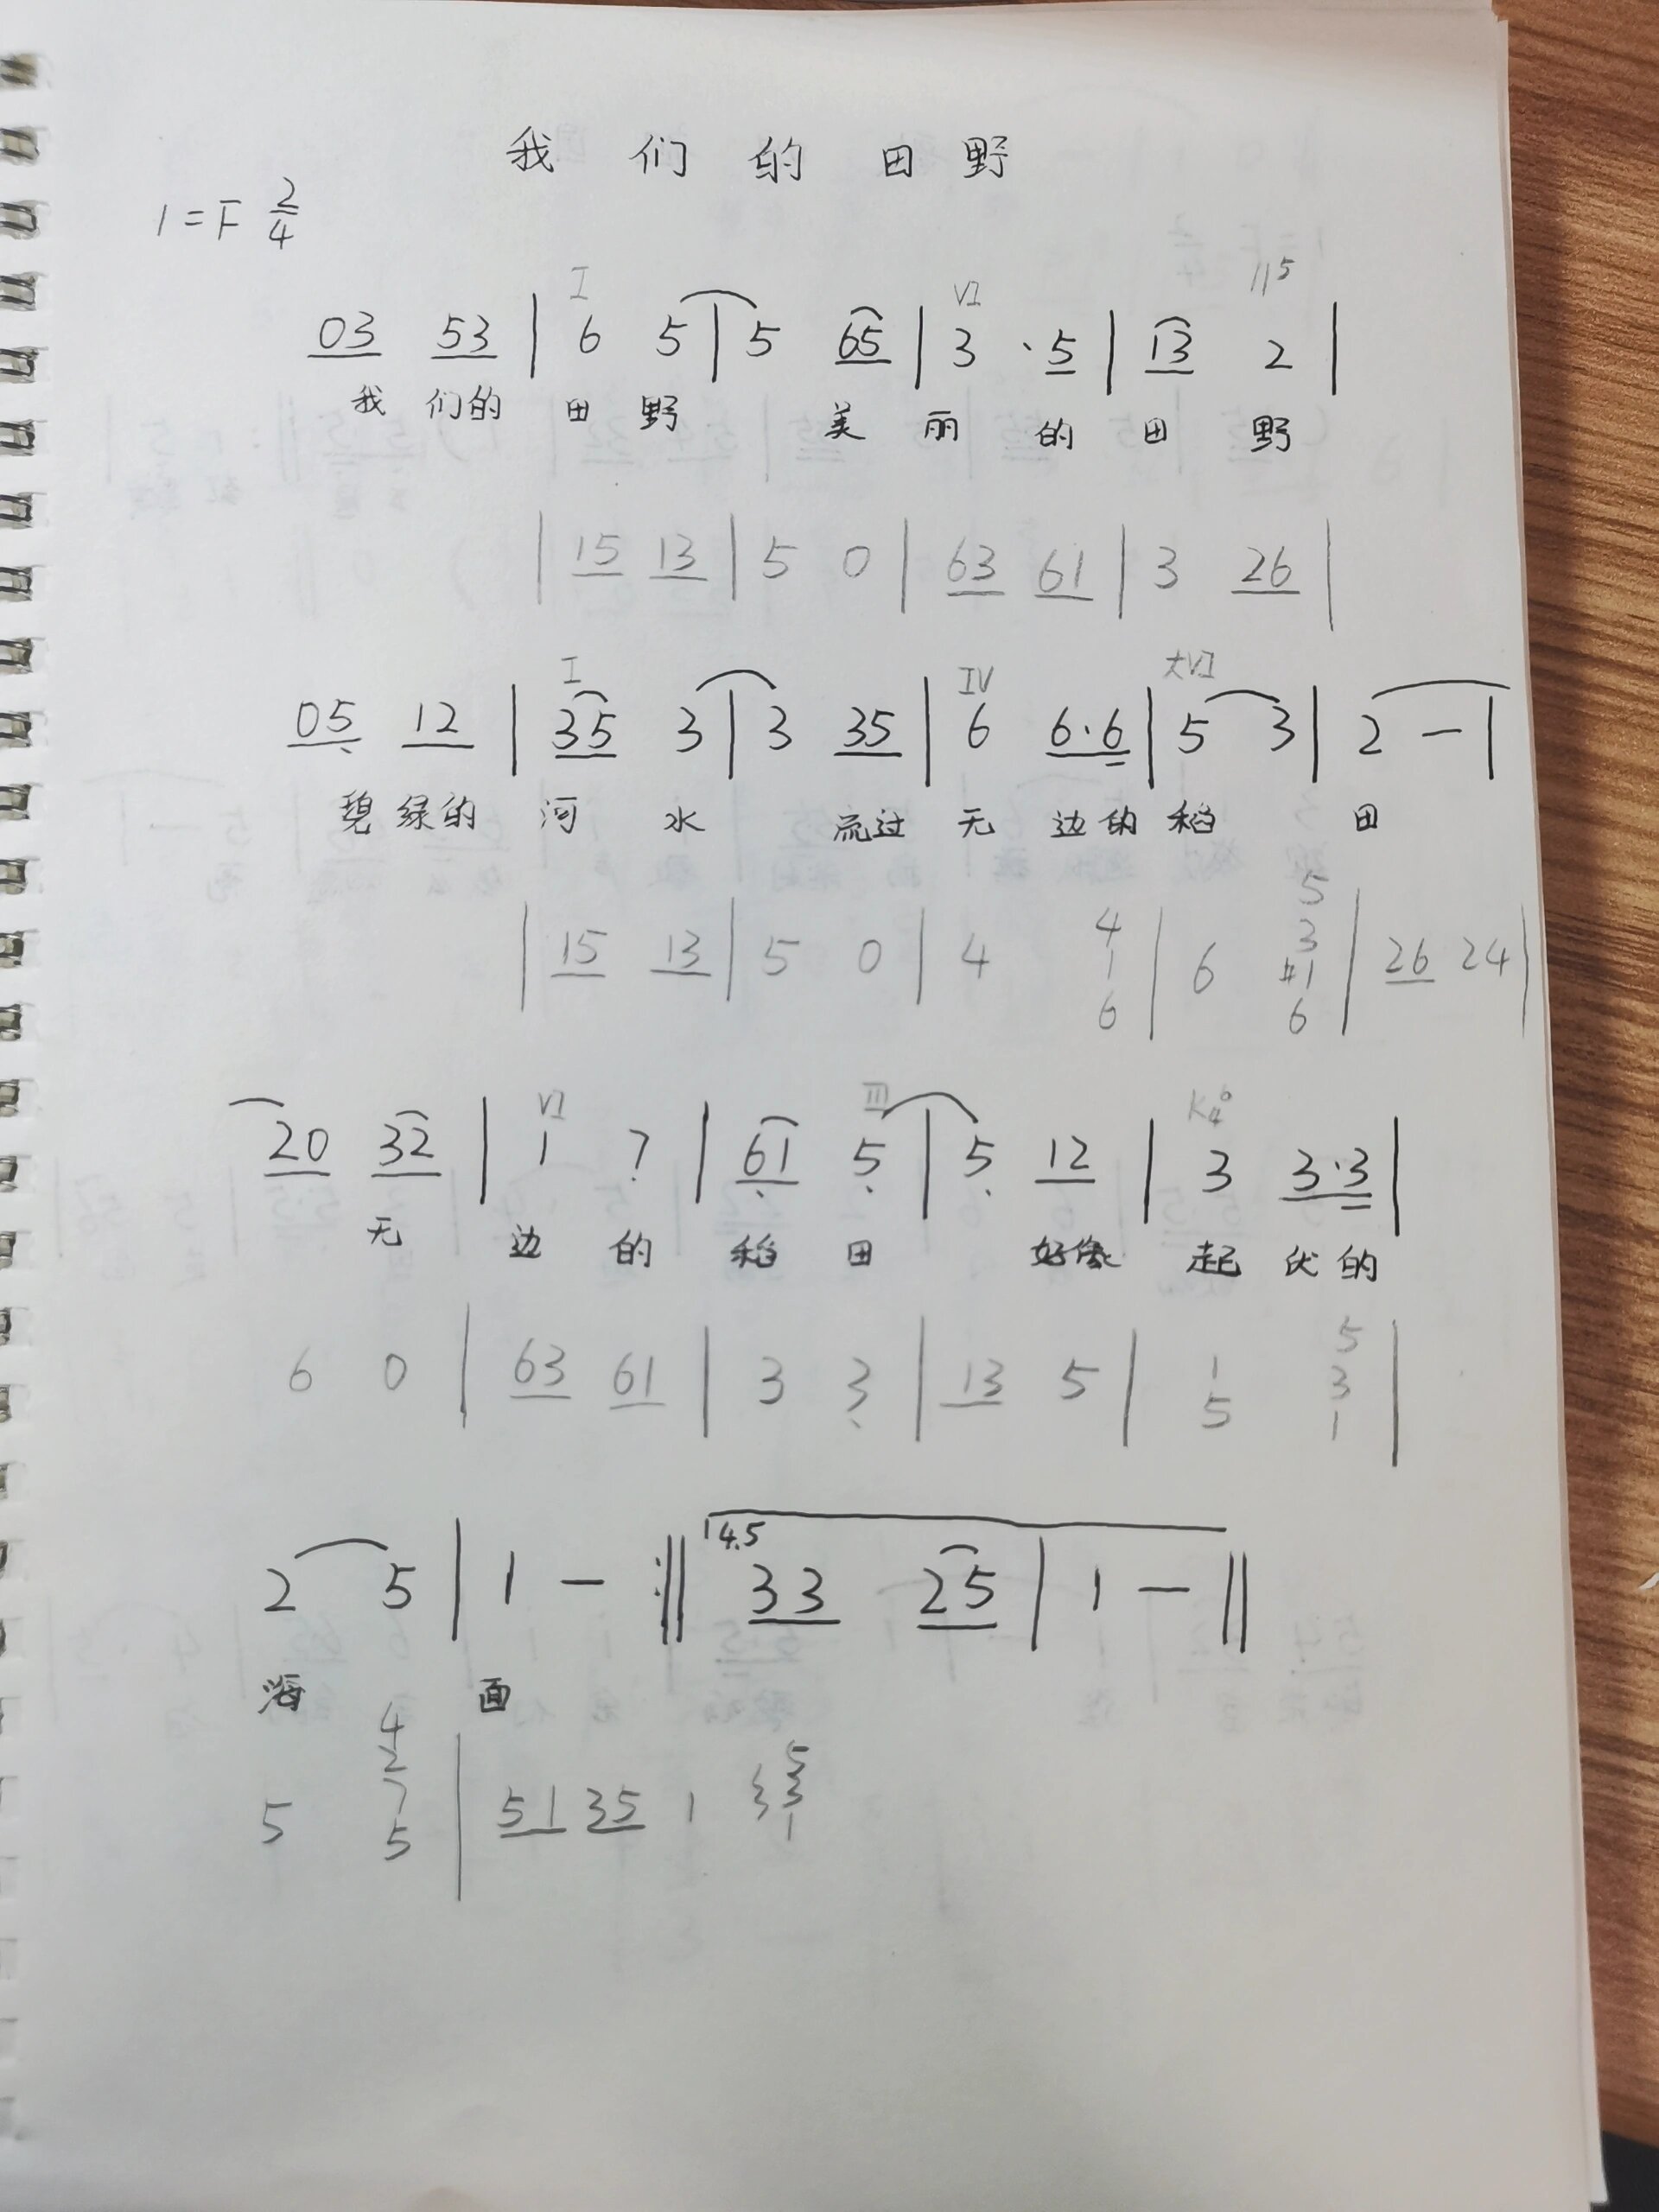 我们的田野
1=F 2/4
I VI II5
03 53 | 6 5 | 5 65 | 3 · 5 | 13 2 |
我 们的 田 野 美 丽 的 田 野
| 15 13 | 5 0 | 63 61 | 3 26 |
I IV 大VI
05 12 | 35 3 | 3 35 | 6 6·6 | 5 3 | 2 - |
碧 绿的 河 水 流过 无 边的 稻 田
5
4 3
| 15 13 | 5 0 | 4 1 | 6 #1 | 26 24 |
6 6
VI III K46
20 32 | 1 7 | 61 5 | 5 12 | 3 3·3 |
无 边 的 稻 田 好像 起 伏的
5
6 0 | 63 61 | 3 3 | 13 5 | 1 3 |
5 1
14.5
2 5 | 1 - :‖ 33 25 | 1 - ‖
海 面
4
2 5
7 3
5 5 | 51 35 1 1